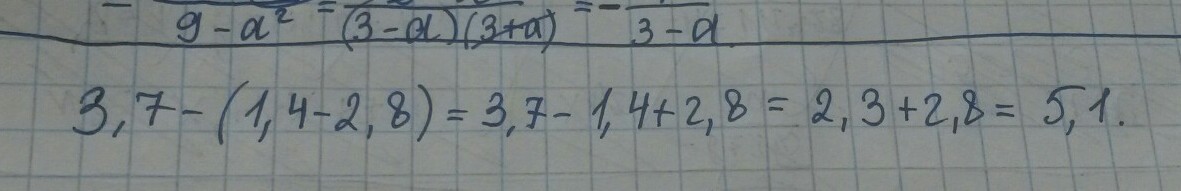 9 - a² = (3-a)(3+a) = - 3-a
3,7 - (1,4 - 2,8) = 3,7 - 1,4 + 2,8 = 2,3 + 2,8 = 5,1.